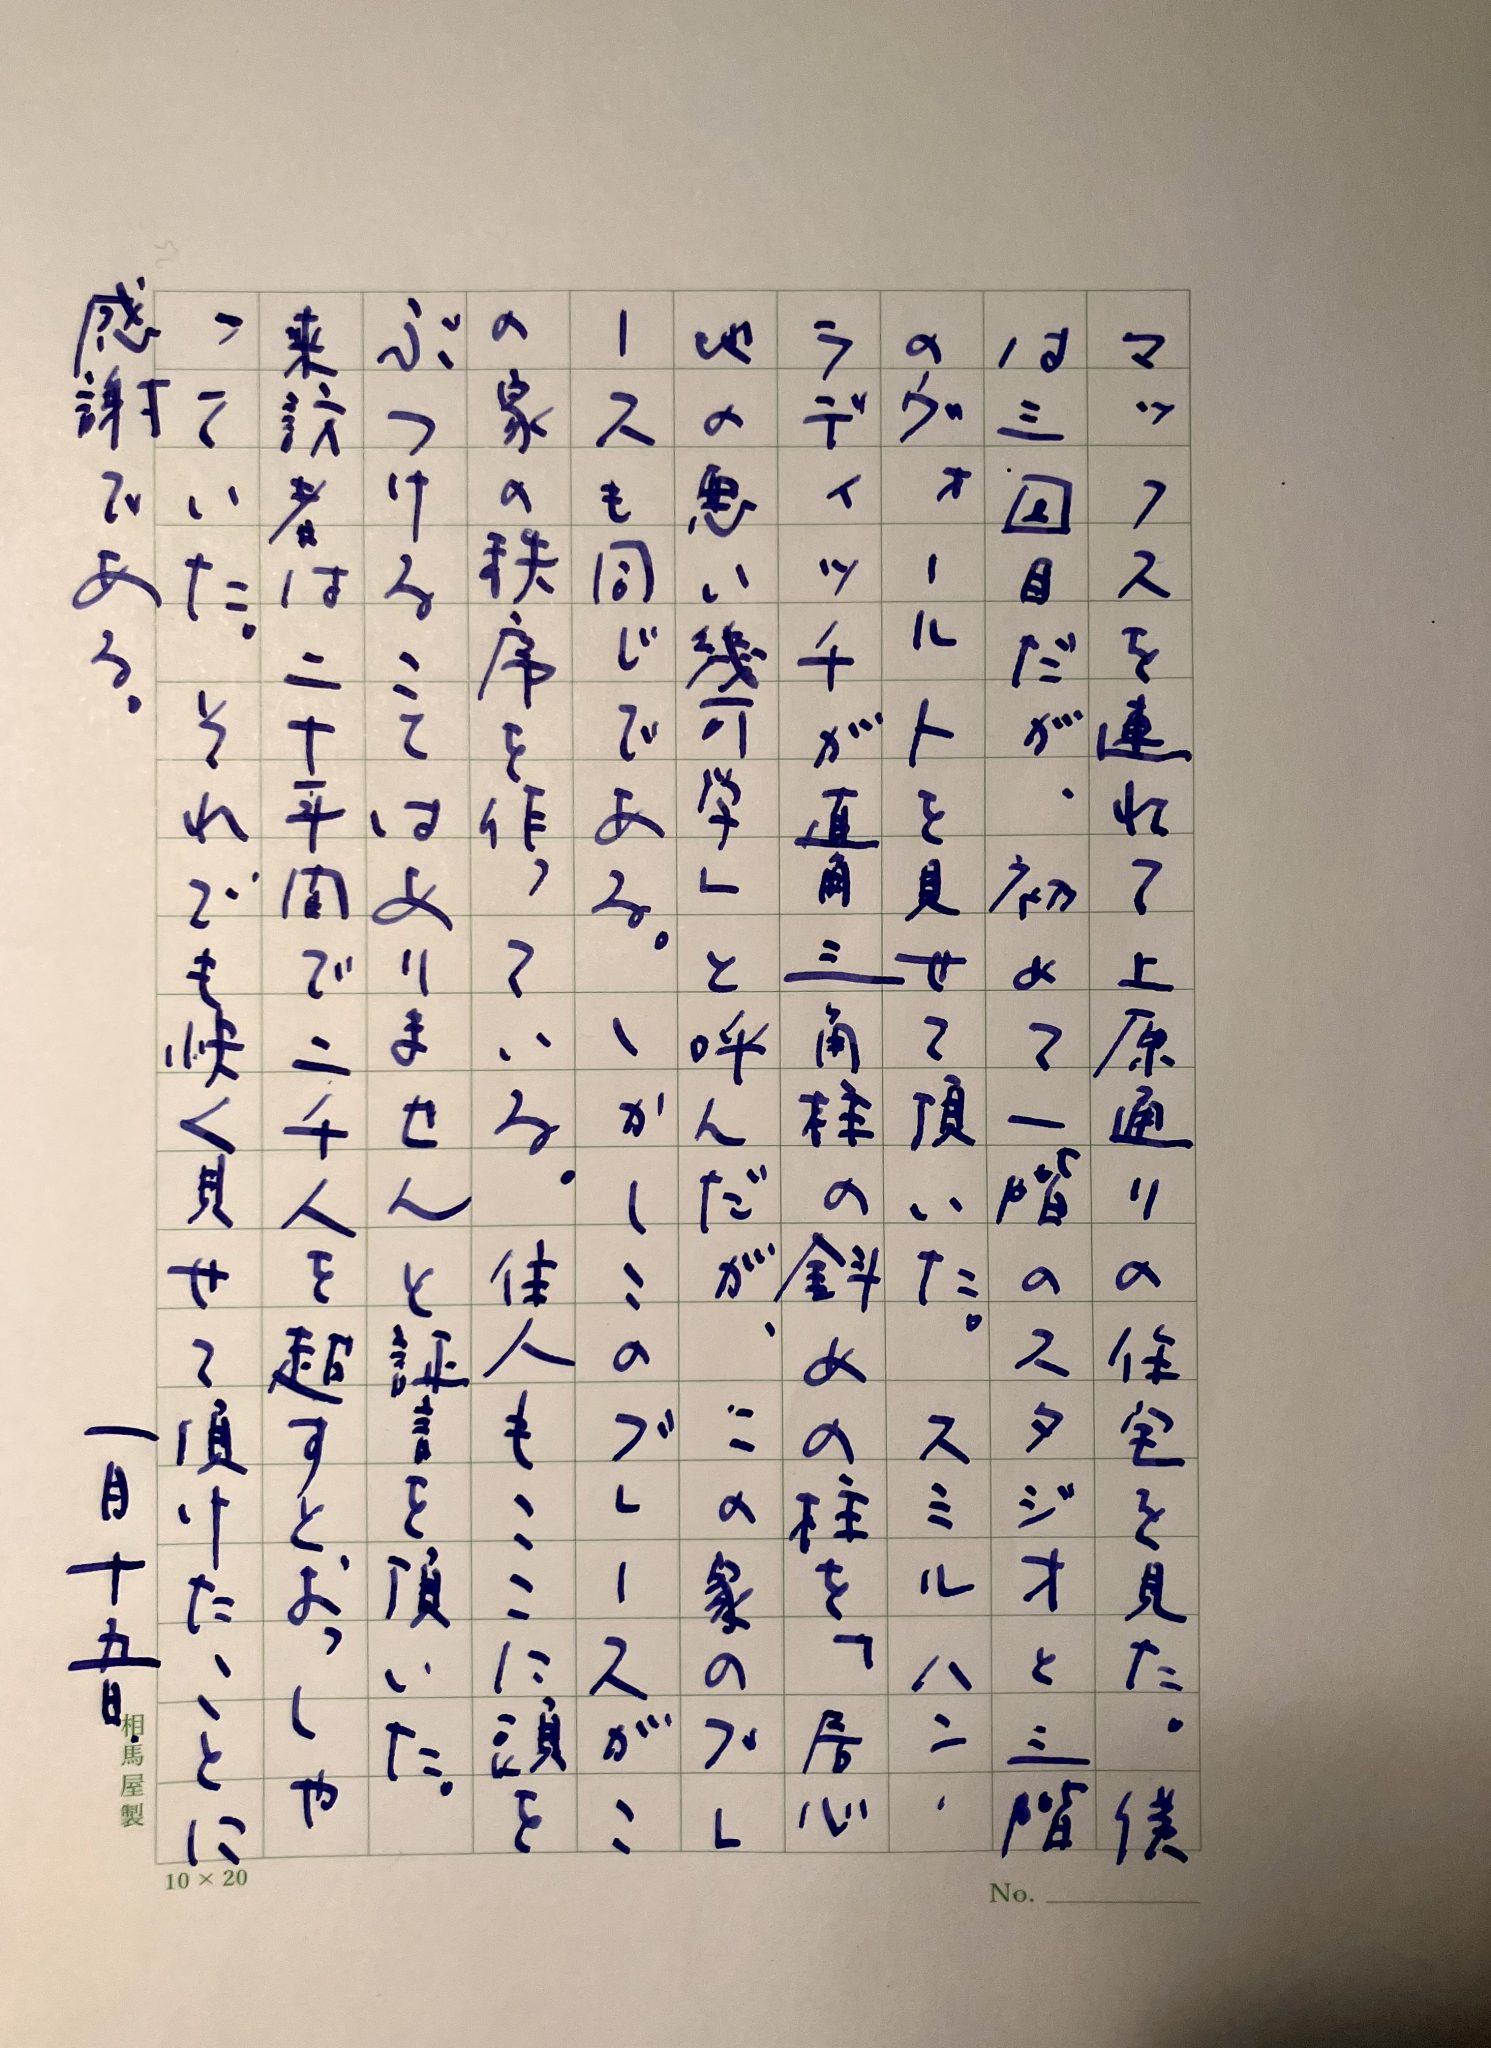 マッフスを連れて上原通りの住宅を見た。僕
は三回目だが、初めて一階のスタジオと三階
のヴォールトを見せて頂いた。スミルハン・
ラディッチが直角三角柱の斜めの柱を「居心
地の悪い幾何学」と呼んだが、この家のブレ
ースも同じである。しかしこのブレースがこ
の家の秩序を作っている。住人もここに頭を
ぶつけることはありませんと証言を頂いた。
来訪者は二十年間で二千人を超すとおっしゃ
っていた。それでも快く見せて頂けたことに
感謝である。
一月十五日
相馬屋製
10×20
No.